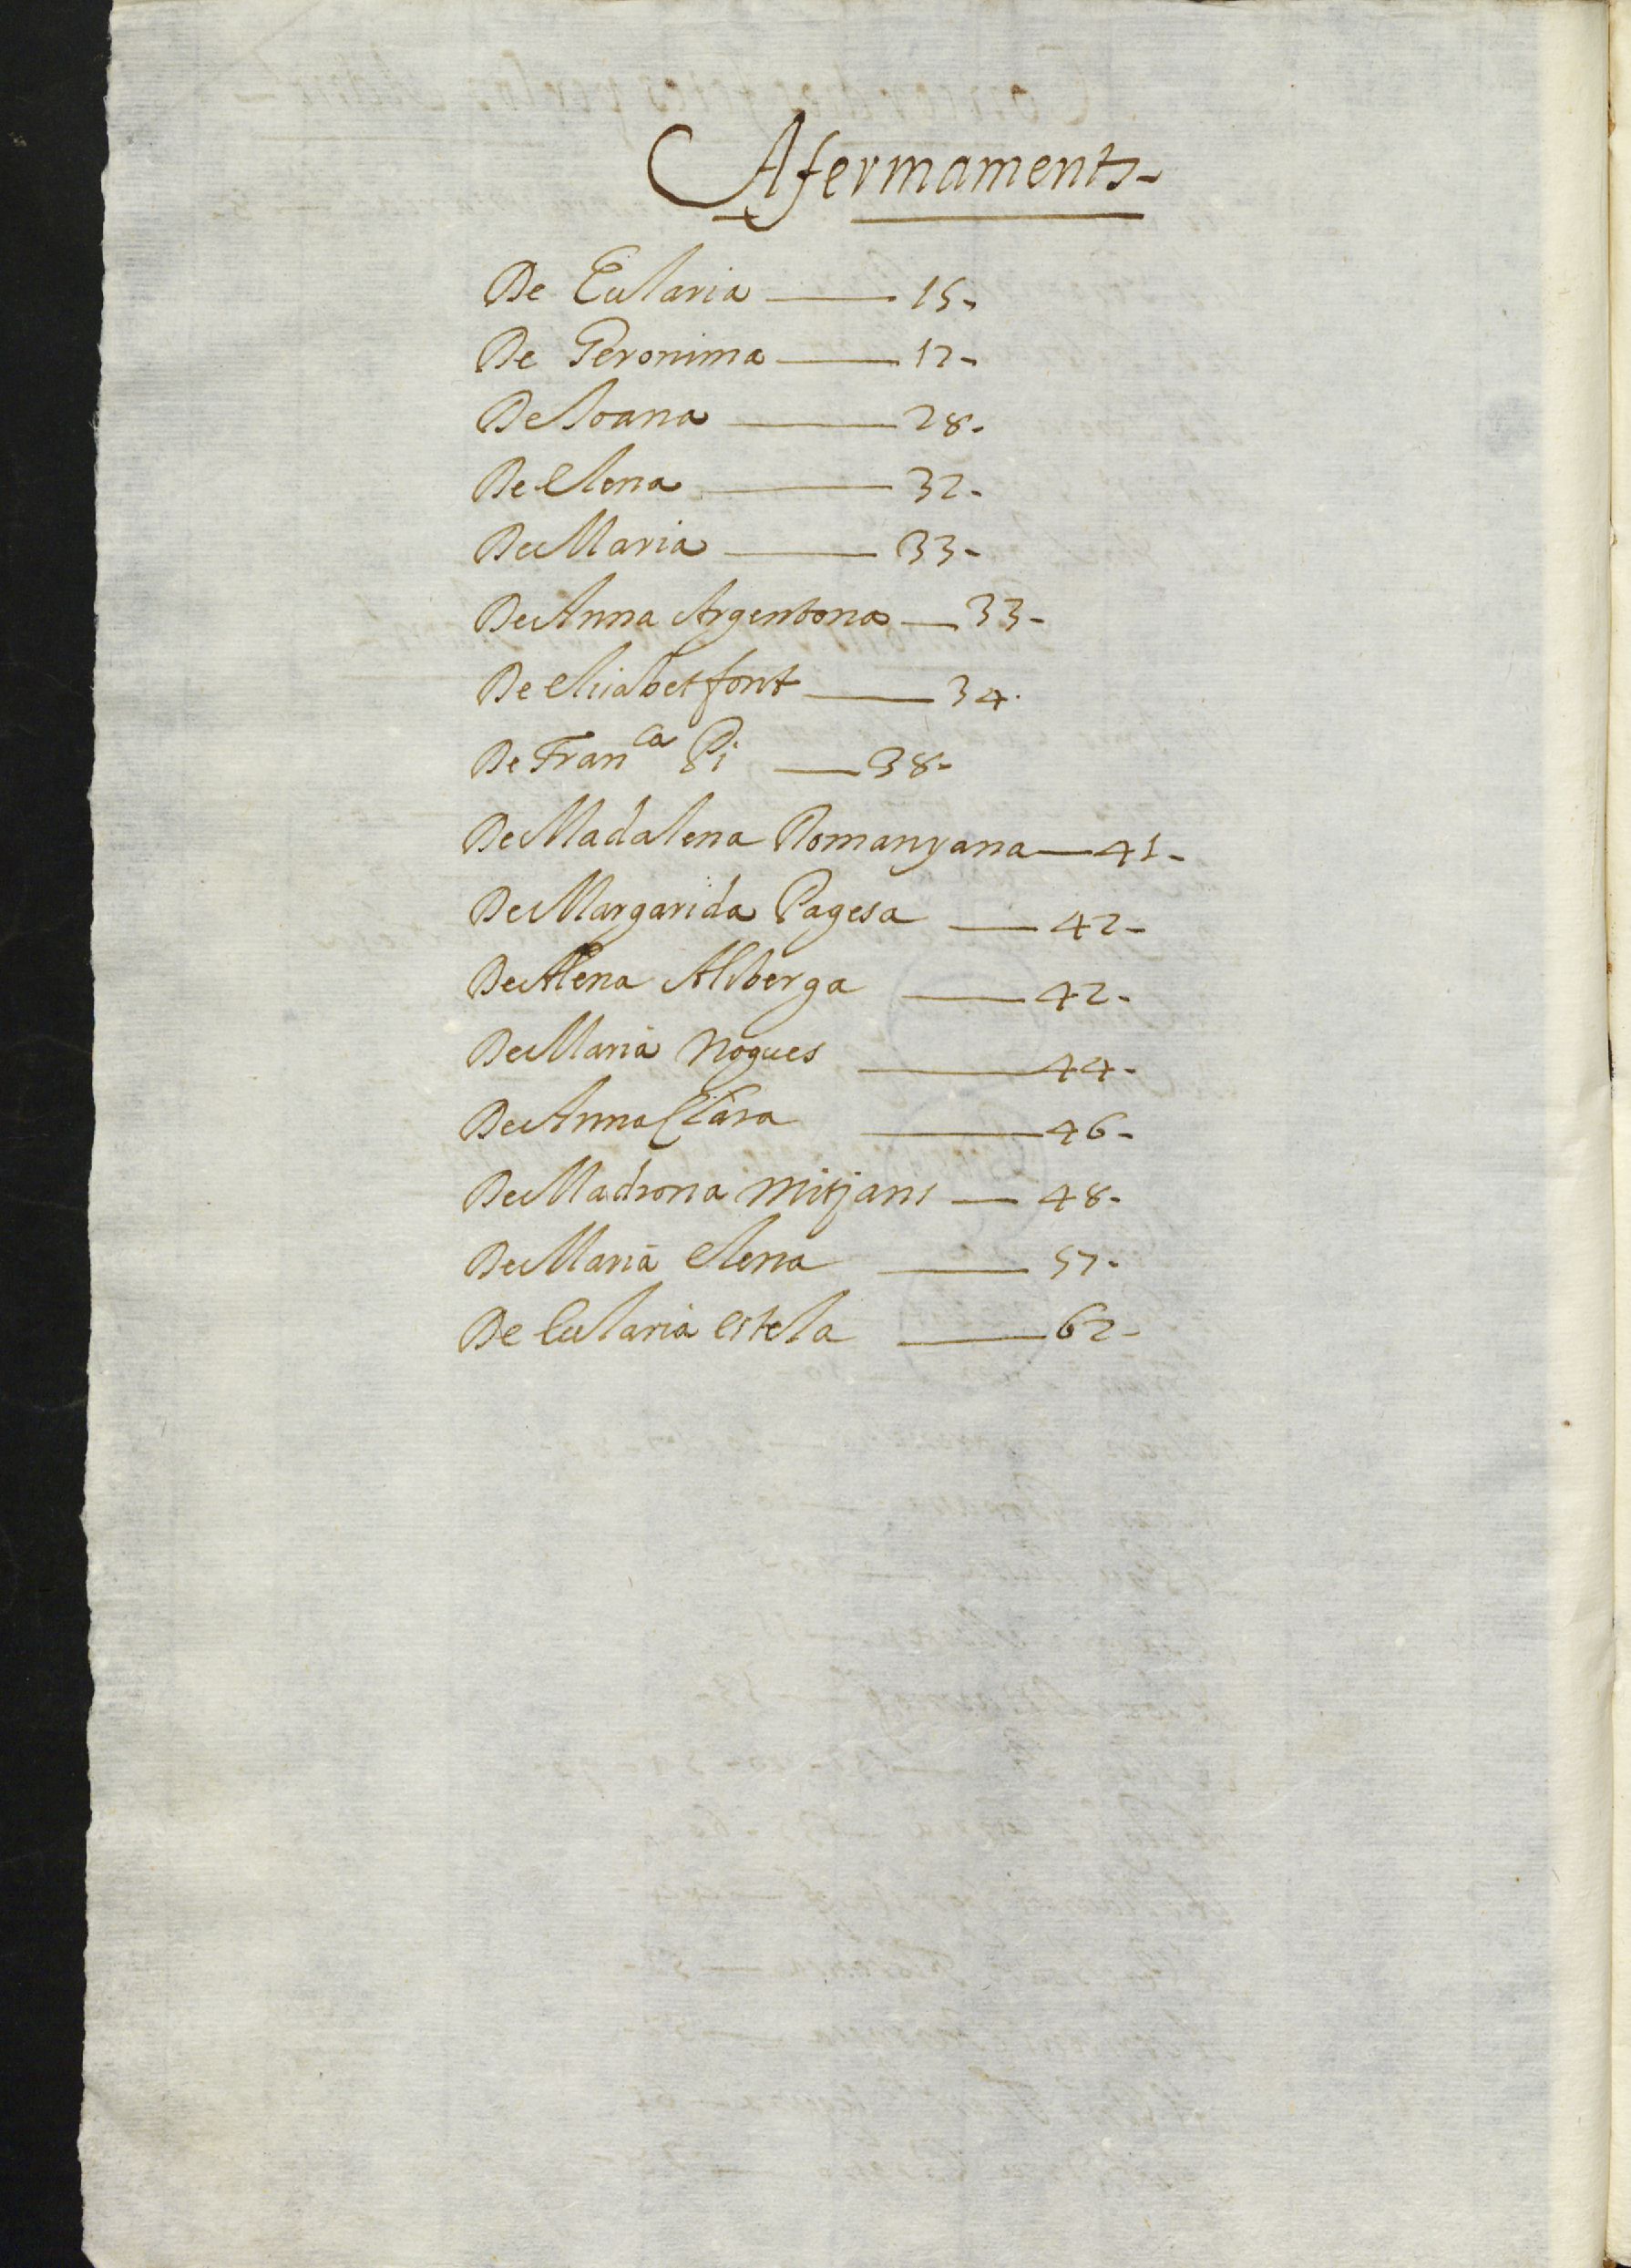 Afermaments-
De Eularia — 15-
De Geronima — 17-
De Joana — 28-
De elena — 32-
De Maria — 33-
De Anna Argentona — 33-
De elisabet font — 34.
De Fran^ca Pi — 38-
De Madalena Romanyana — 41-
De Margarida Pagesa — 42-
De Alena Alberga — 42-
De Maria Nogues — 44-
De Anna Clara — 46-
De Madrona mitjans — 48-
De Maria elena — 57-
De Eularia estela — 62-